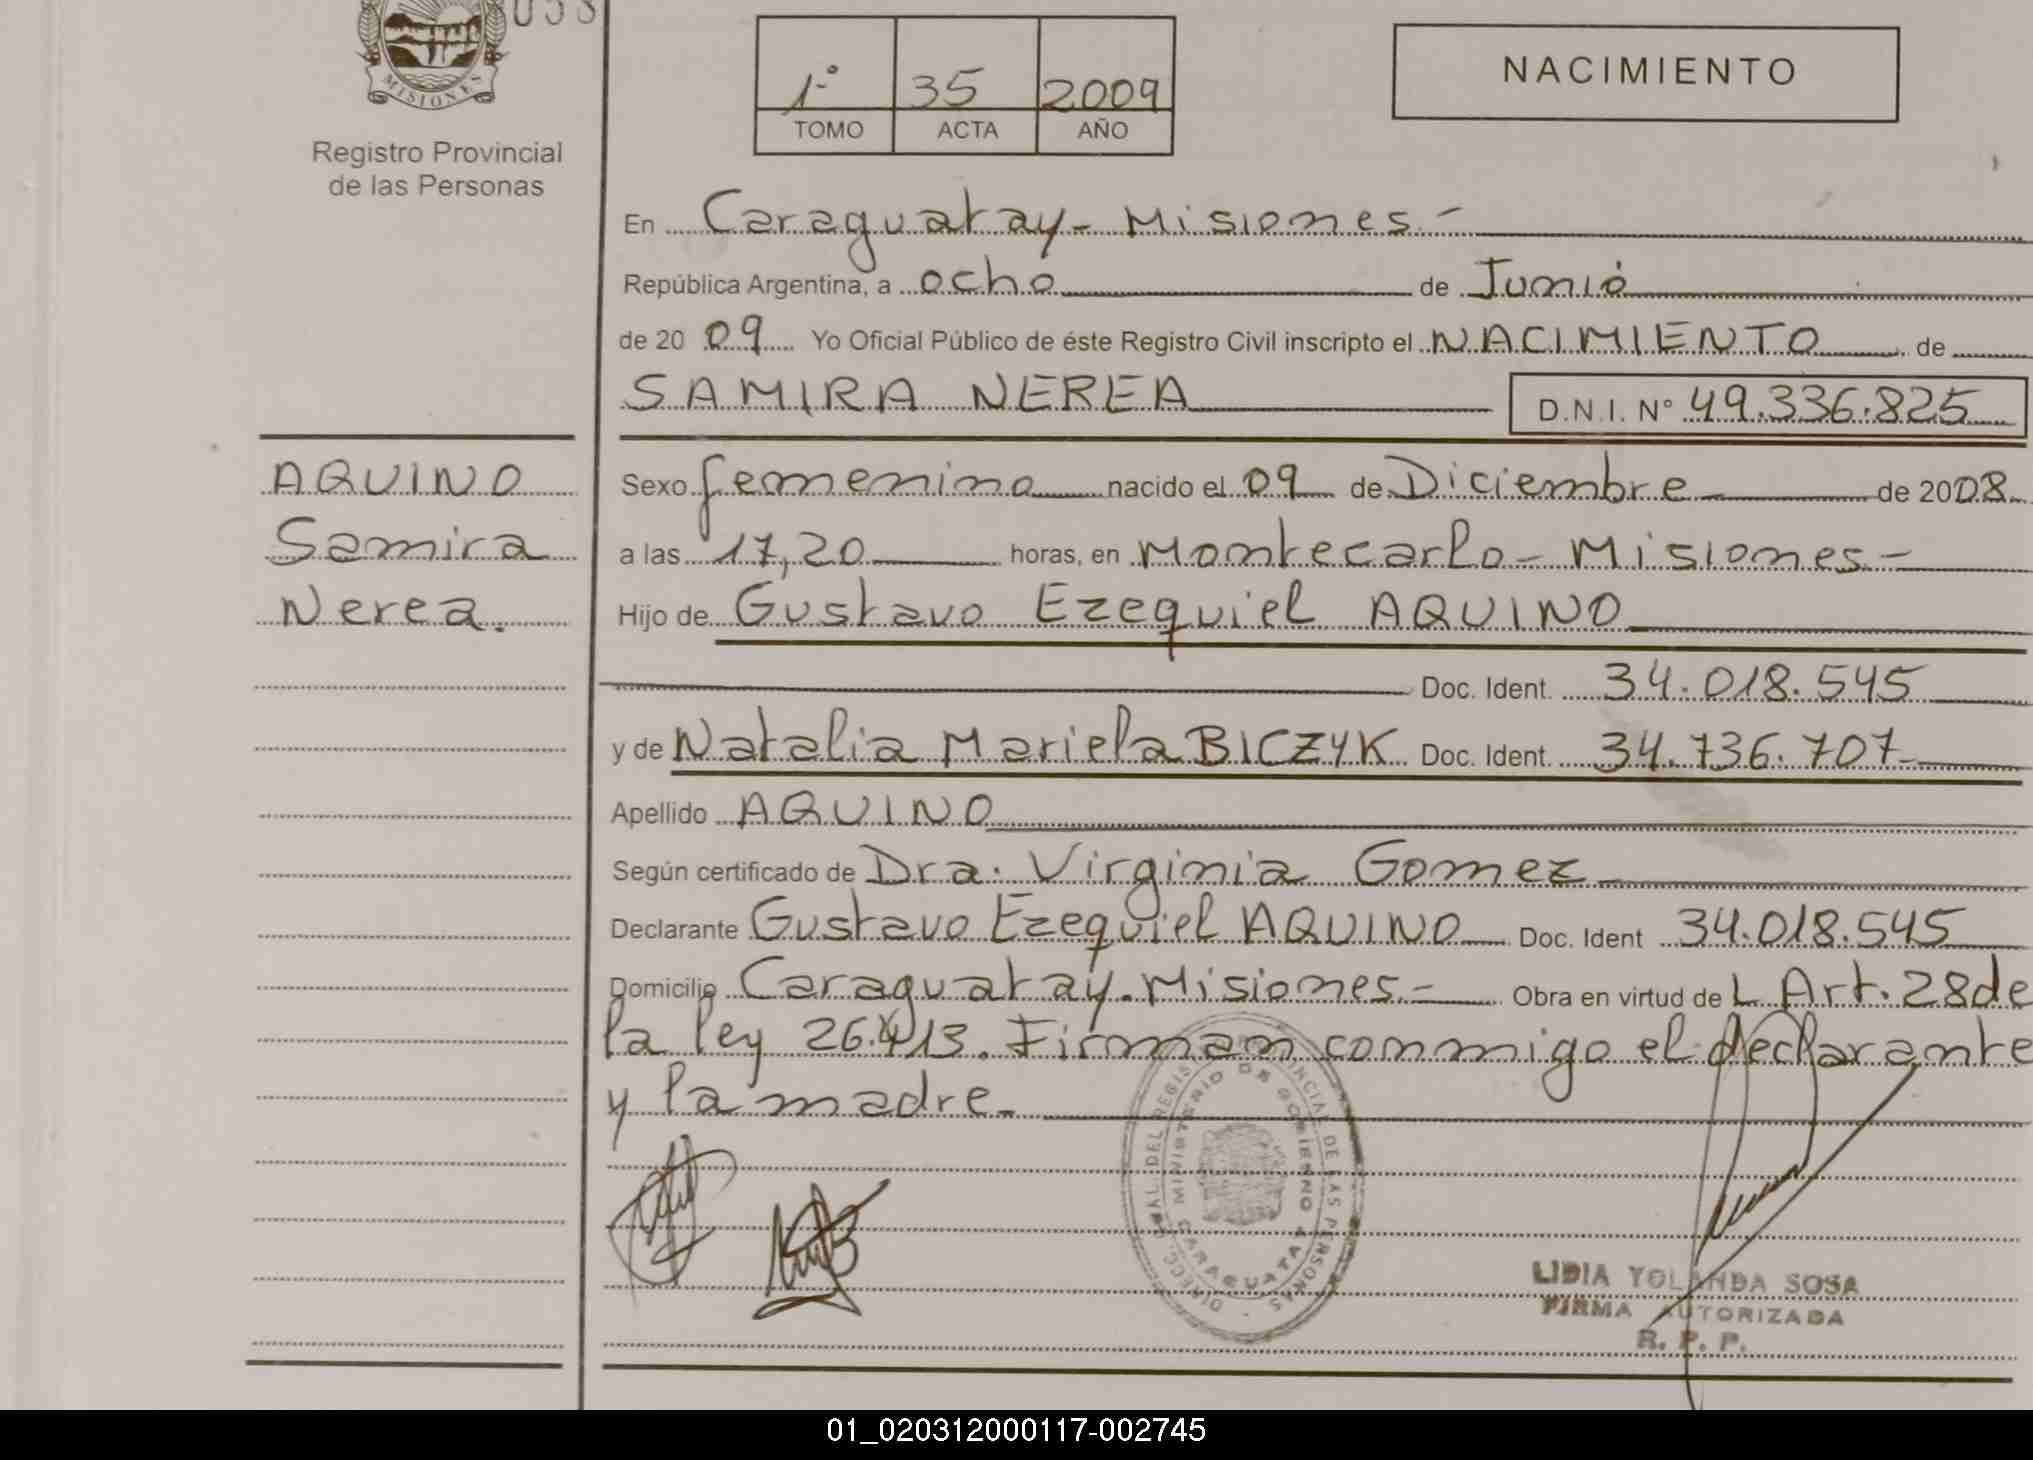 MISIONES
Registro Provincial
de las Personas
1º 35 2009
TOMO ACTA AÑO
NACIMIENTO
En Caraguatay - Misiones -
República Argentina, a ocho de Junio
de 20 09 Yo Oficial Público de éste Registro Civil inscripto el NACIMIENTO de
SAMIRA NEREA D.N.I. Nº 49.336.825
AQUINO
Samira
Nerea.
Sexo femenino nacido el 09 de Diciembre de 2008
a las 17,20 horas, en Montecarlo - Misiones -
Hijo de Gustavo Ezequiel AQUINO
Doc. Ident. 34.018.545
y de Natalia Mariela BICZYK Doc. Ident. 34.736.707
Apellido AQUINO
Según certificado de Dra. Virginia Gomez
Declarante Gustavo Ezequiel AQUINO Doc. Ident 34.018.545
Domicilio Caraguatay - Misiones - Obra en virtud de L Art. 28 de
la ley 26.413. Firman conmigo el declarante
y la madre.
MINISTERIO DE GOBIERNO
CARAGUATAY
LIDIA YOLANDA SOSA
FIRMA AUTORIZADA
R. P. P.
01_020312000117-002745